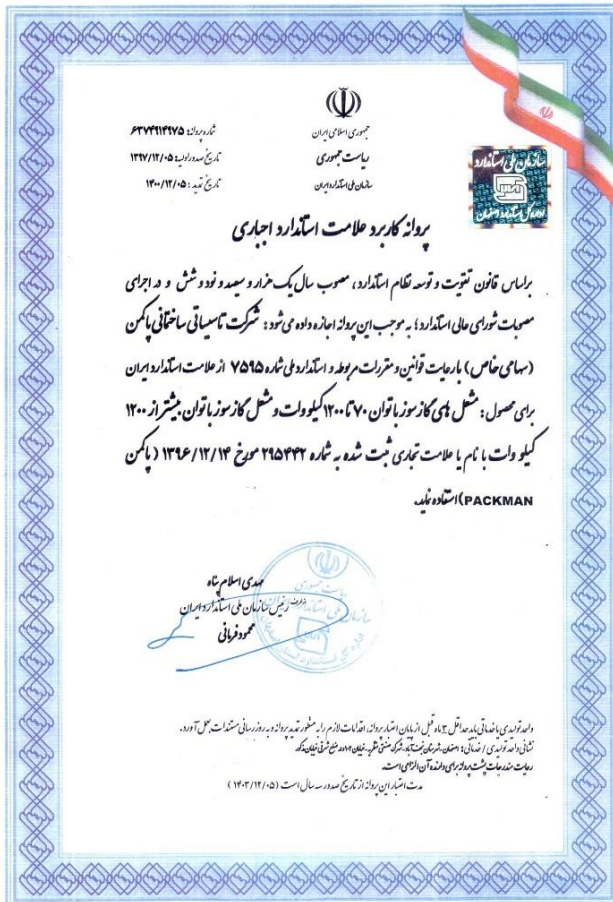 جمهوری اسلامی ایران
ریاست جمهوری
سازمان ملی استاندارد ایران
شماره پروانه: ۶۳۷۴۹۱۴۹۷۵
تاریخ صدور اولیه: ۱۳۹۷/۱۲/۰۵
تاریخ تمدید: ۱۴۰۰/۱۲/۰۵
سازمان ملی استاندارد
اداره کل استاندارد اصفهان
پروانه کاربرد علامت استاندارد اجباری
براساس قانون تقویت و توسعه نظام استاندارد، مصوب سال یک هزار و سیصد و نود و شش و در اجرای
مصوبات شورای عالی استاندارد؛ به موجب این پروانه اجازه داده می شود: شرکت تاسیساتی ساختمانی پاکمن
(سهامی خاص) با رعایت قوانین و مقررات مربوطه و استاندارد ملی شماره ۷۵۹۵ از علامت استاندارد ایران
برای محصول: مشعل های گازسوز با توان ۷۰ تا ۱۲۰۰ کیلو وات و مشعل گازسوز با توان بیشتر از ۱۲۰۰
کیلو وات با نام یا علامت تجاری ثبت شده به شماره ۲۹۵۴۴۲ مورخ ۱۳۹۶/۱۲/۱۴ (پاکمن
PACKMAN) استفاده نماید.
مهدی اسلام پناه
از طرف رئیس سازمان ملی استاندارد ایران
محمود فرمانی
واحد تولیدی یا خدماتی باید حداقل ۳ ماه قبل از پایان اعتبار پروانه، اقدامات لازم را به منظور تمدید پروانه و به روز رسانی مستندات بعمل آورد.
نشانی واحد تولیدی / خدماتی: اصفهان، شهرستان نجف آباد،
رعایت مندرجات پشت پروانه برای دارنده آن الزامی است.
مدت اعتبار این پروانه از تاریخ صدور سه سال است (۱۴۰۳/۱۲/۰۵)